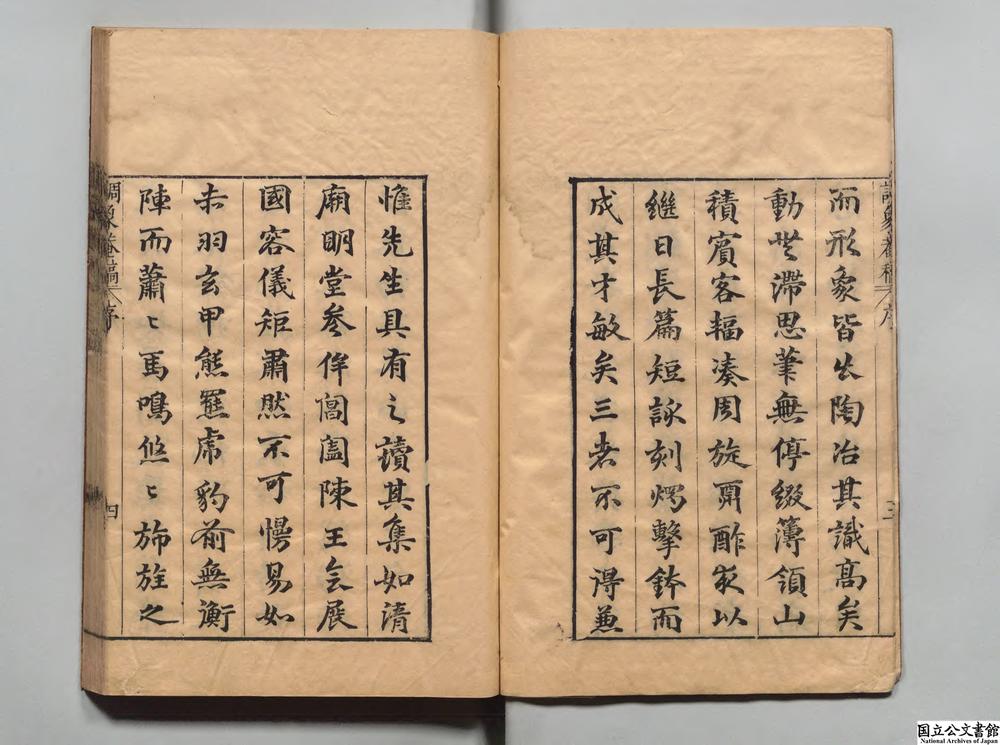 而形象皆出陶冶其識高矣
動無滯思筆無停綴簿領山
積賓客輻湊周旋酬酢夜以
繼日長篇短詠刻燭擊鉢而
成其才敏矣三者不可得兼
惟先生具有之讀其集如清
廟明堂參侔閶闔陳王會展
國容儀矩肅然不可慢易如
朱羽玄甲熊羆虎豹前無衡
陣而蕭〻馬鳴悠〻旆旌之
調象菴稿
序
三
調象菴稿
序
四
国立公文書館
National Archives of Japan